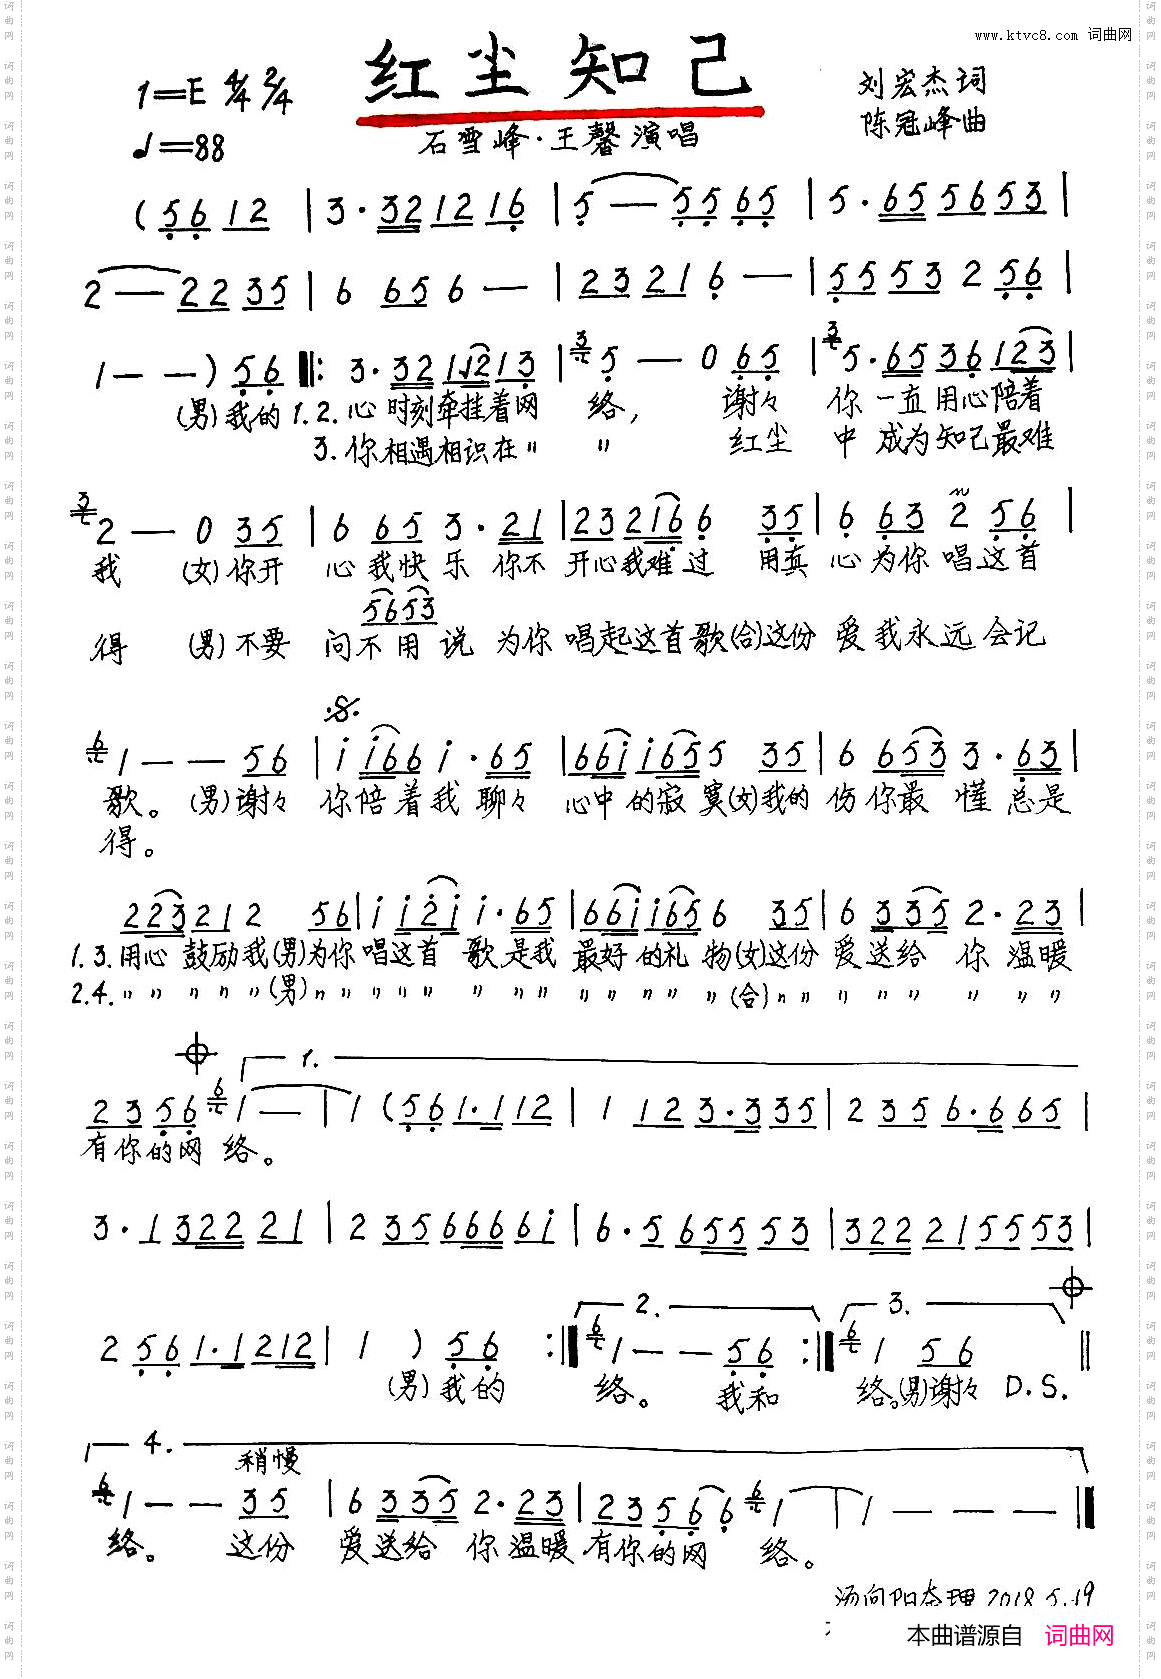 www.ktvc8.com 词曲网
红尘知己
1=E 4/4 2/4
刘宏杰词
♩=88
石雪峰·王馨演唱
陈冠峰曲
(5612|3·321216|5—5565|5·65565653|
2—2235|6 656—|2321 6—|5553 2 56|
1——)56‖:3·321213|5—0 65|5·6536123|
(男)我的1.2.心时刻牵挂着网 络, 谢々 你一直用心陪着
3.你相遇相识在〃 〃 红尘 中成为知己最难
2—0 35|6 65 3·21|232166 35|6 63 2 56|
我 (女)你开 心我快乐 你不 开心我难过 用真 心为你 唱这首
5653
得 (男)不要 问不用说 为你 唱起这首歌(合)这份 爱我永远会记
1——56|i i66 i·65|66i i655 35|6 653 3·63|
歌。(男)谢々 你陪着我聊々 心中的寂寞(女)我的 伤你最 懂总是
得。
223212 56|i i2i i·65|66i i656 35|6 3335 2·23|
1.3.用心鼓励我(男)为你唱这首 歌是我 最好的礼物(女)这份 爱送给 你 温暖
2.4.〃〃 〃〃〃(男)〃〃〃〃〃 〃 〃〃 〃〃〃〃〃(合)〃〃〃〃〃 〃 〃〃
1.
2356 1—|1(561·112|1 123·335|235 6·665|
有你的网 络。
3·132221|23566661|6·565553|322215553|
2. 3.
2 561·1212|1 )56:‖1——56:‖1 56‖
(男)我的 络。 我和 络。(男)谢々 D.S.
4.
稍慢
1——35|6 335 2·23|235661—|1———‖
络。 这份 爱送给 你温暖 有你的网 络。
2018.5.19
本曲谱源自 词曲网